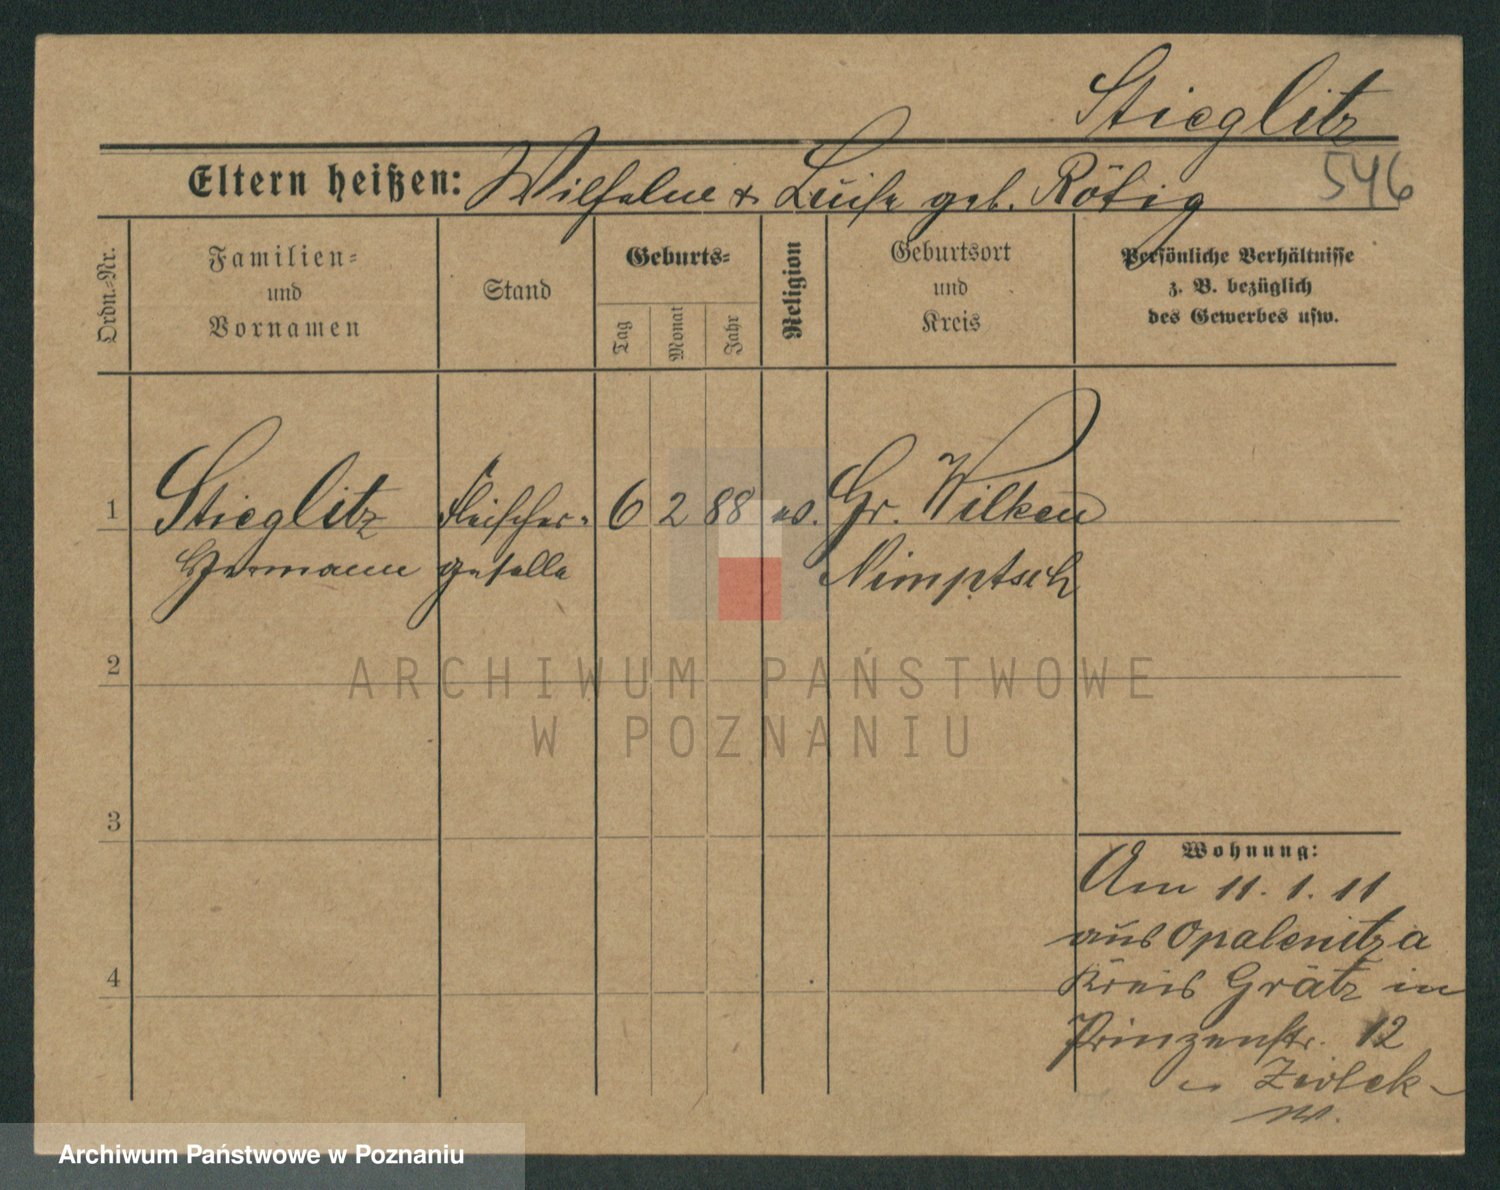 Stieglitz
546
Eltern heißen: Wilhelm & Luise geb. Rötig
Ordn.-Nr.
Familien-
und
Vornamen
Stand
Geburts-
Tag
Monat
Jahr
Religion
Geburtsort
und
Kreis
Persönliche Verhältnisse
z. B. bezüglich
des Gewerbes usw.
1 Stieglitz Fleischer- 6 2 88 ev. Gr. Wilkau
Hermann geselle Nimptsch
2
3
4
Wohnung:
Am 11. 1. 11
aus Opalenitza
Kreis Grätz in
Prinzenstr. 12
ARCHIWUM PAŃSTWOWE
W POZNANIU
Archiwum Państwowe w Poznaniu